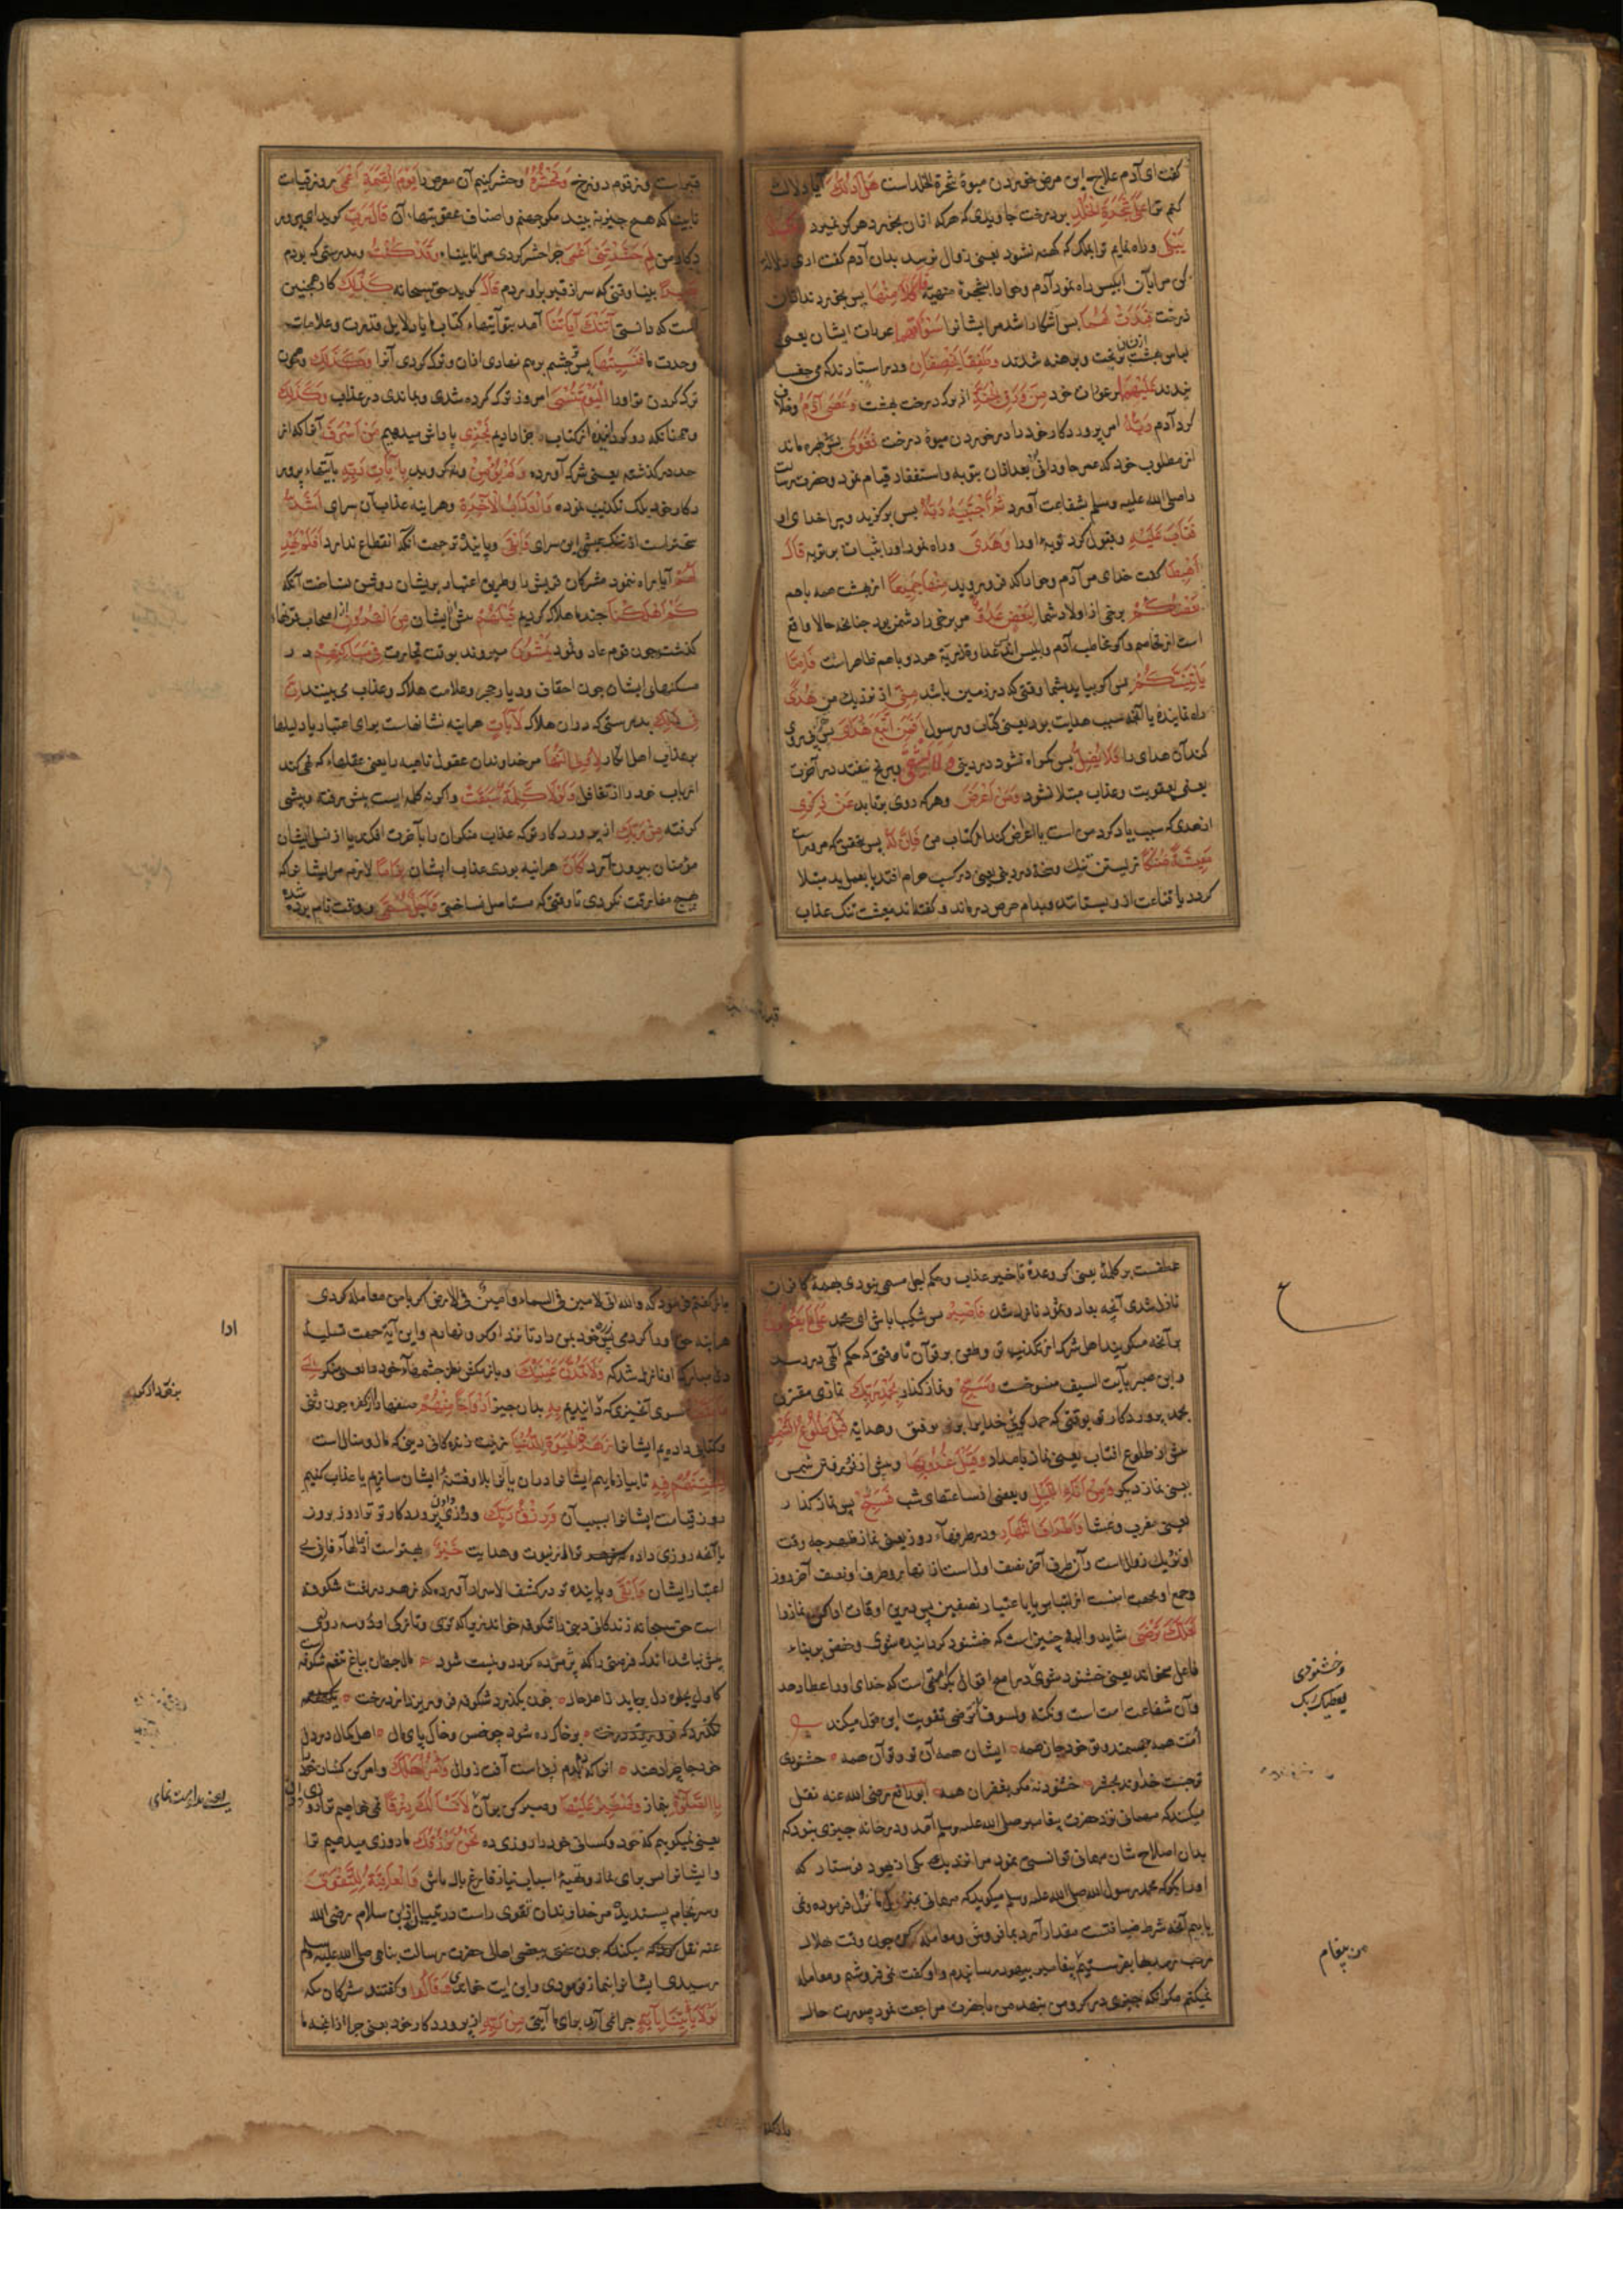 گفت ای آدم علاج این مرض خوردن میوهٔ شجرة الخلد است هَلْ اَدُلُّكَ آیا دلالت
کنم ترا عَلَىٰ شَجَرَةِ الْخُلْدِ بر درخت جاویدی که هرکه ازان بخورد هرکز نمیرد وَمُلْكٍ لَا
يَبْلَىٰ و راه نمایم ترا بملکی که کهنه نشود یعنی زوال نرسد بدان آدم کفت اری دلالت
کن مرا بآن ابلیس راه نمود آدم و حوا را بشجرهٔ منهیه فَاَكَلَا مِنْهَا پس بخوردند ازان
درخت فَبَدَتْ لَهُمَا پس اشکارا شد مر ایشانرا سَوْآتُهُمَا عورات ایشان یعنی
لباس بهشت ازیشان بریخت و برهنه شدند وَطَفِقَا يَخْصِفَانِ و در استادند که می چفسا
نیدند عَلَيْهِمَا بر عورات خود مِنْ وَرَقِ الْجَنَّةِ از برک درخت بهشت وَعَصَىٰ آدَمُ و خلاف
کرد آدم رَبَّهُ امر پروردکار خود را در خوردن میوهٔ درخت فَغَوَىٰ پس بی بهره ماند
از مطلوب خود که عمر جاودانی بعد ازان بتوبه و استغفار قیام نمود و حضرت رسالت
را صلی الله علیه وسلم بشفاعت آورد ثُمَّ اجْتَبَاهُ رَبُّهُ پس برکزید ویرا خدای او
فَتَابَ عَلَيْهِ و قبول کرد توبهٔ اورا وَهَدَىٰ و راه نمود اورا بثبات بر توبه قَالَ
اهْبِطَا کفت خدای مر آدم و حوا را که فرو روید مِنْهَا جَمِيعًا از بهشت همه باهم
بَعْضُكُمْ برخی از اولاد شما لِبَعْضٍ عَدُوٌّ مر برخی را دشمن بود چنانچه حالا واقع
است از تخاصم و اکر مخاطب آدم و ابلیس اند عداوة ذریهٔ هر دو باهم ظاهر است فَاِمَّا
يَاْتِيَنَّكُمْ پس اکر بیاید بشما وقتی که در زمین باشید مِنِّي از نزدیک من هُدًى
راه نماینده یا آنچه سبب هدایت بود یعنی کتاب و رسول فَمَنِ اتَّبَعَ هُدَايَ پس هر که پیروی
کند آن هدای را فَلَا يَضِلُّ پس کمراه نشود در دینی وَلَا يَشْقَىٰ و برنج نیفتد در آخرت
یعنی بعقوبت و عذاب مبتلا نشود وَمَنْ اَعْرَضَ و هرکه روی برتابد عَنْ ذِكْرِي
از هدی که سبب یاد کرد من است یا اعراض کند از کتاب من فَاِنَّ لَهُ پس بتحقیق که مر وراست
مَعِيشَةً ضَنْكًا زیستن تنک و سخت در دینی یعنی در کسب حرام افتد یا بعمل بد مبتلا
کردد یا قناعت ازو بستانند و بدام حرص درماند و کفته اند معیشت تنک عذاب
قبر است و زقوم دوزخ وَنَحْشُرُهُ و حشر کنیم آن معرض را يَوْمَ الْقِيَامَةِ اَعْمَىٰ روز قیامت
نابینا که هیچ چیز نه بیند مکر جهنم و اصناف عقوبتهاء آن قَالَ رَبِّ کوید ای پرور
دکار من لِمَ حَشَرْتَنِي اَعْمَىٰ چرا حشر کردی مرا نابینا وَقَدْ كُنْتُ و بدرستی که بودم
بَصِيرًا بینا وقتی که سر از قبر برآوردم قَالَ کوید حق سبحانه كَذَٰلِكَ کار همچنین
است که دانستی اَتَتْكَ آيَاتُنَا آمد بتو آیتهاء کتاب ما یا دلایل قدرت و علامات
وحدت ما فَنَسِيتَهَا پس تو چشم برهم نهادی ازان و ترک کردی آنرا وَكَذَٰلِكَ و همچون
ترک کردن تو اورا الْيَوْمَ تُنْسَىٰ امروز ترک کرده شدی و بماندی در عذاب وَكَذَٰلِكَ
و همچنانکه روکرداننده از کتاب جزا دادیم نَجْزِي پاداش میدهیم مَنْ اَسْرَفَ آنرا که از
حد در گذشت یعنی شرک آورده وَلَمْ يُؤْمِنْ و نه کروید بِآيَاتِ رَبِّهِ بآیتهاء پرور
دکار خود بلک تکذیب نموده وَلَعَذَابُ الْآخِرَةِ و هر اینه عذاب آن سرای اَشَدُّ
سخت‌تر است از تنک عیشی این سرای وَاَبْقَىٰ و پاینده تر جهت آنکه انقطاع ندارد اَفَلَمْ يَهْدِ
لَهُمْ آیا راه ننمود مشرکان قریش را و طریق اعتبار بریشان روشن نساخت آنکه
كَمْ اَهْلَكْنَا چند ما هلاک کردیم قَبْلَهُمْ پیش از ایشان مِنَ الْقُرُونِ از اصحاب قرنهاء
کذشته چون قوم عاد و ثمود يَمْشُونَ میروند بوقت تجارت فِي مَسَاكِنِهِمْ در
مسکنهای ایشان چون احقاف و دیار حجر و علامت هلاک و عذاب می بینند اِنَّ
فِي ذَٰلِكَ بدرستی که در ان هلاک لَآيَاتٍ هراینه نشانهاست برای اعتبار یا دلیلها
بر عذاب اهل انکار لِاُولِي النُّهَىٰ مر خداوندان عقول ناهیه را یعنی عقلهاء که نهی کند
ارباب خود را از تغافل وَلَوْلَا كَلِمَةٌ سَبَقَتْ و اکر نه کلمه ایست پیش رفته و پیشی
کرفته مِنْ رَبِّكَ از پروردکار تو که عذاب منکران را بآخرت افکند یا از نسل ایشان
مؤمنان بیرون آرد لَكَانَ هراینه بودی عذاب ایشان لِزَامًا لازم مر ایشانرا که
هیچ مفارقت نکردی تا وقتی که مستاصل نساختی وَاَجَلٌ مُسَمًّى و وقت نام برده شده
عطفست بر کلمه یعنی اکر وعدهٔ تاخیر عذاب و حکم اجل مسمی نبودی بهمهٔ کافران
نازل شدی آنچه بعاد و ثمود نازل شد فَاصْبِرْ پس شکیبا باش ای محمد عَلَىٰ مَا يَقُولُونَ
بر آنچه میکویند اهل شرک از تکذیب تو و طعن بر قرآن تا وقتی که حکم الهی در رسد
و این صبر بآیت السیف منسوخست وَسَبِّحْ و نماز کذار بِحَمْدِ رَبِّكَ نمازی مقترن
بحمد پروردکار تو بوقتی که حمد کوئی خدایرا بر توفیق و هدایة قَبْلَ طُلُوعِ الشَّمْسِ
پیش از طلوع افتاب یعنی نماز بامداد وَقَبْلَ غُرُوبِهَا و پیش از فرو رفتن شمس
یعنی نماز دیکر وَمِنْ آنَاءِ اللَّيْلِ و بعضی از ساعتهای شب فَسَبِّحْ پس نماز کذار
یعنی مغرب و عشا وَاَطْرَافَ النَّهَارِ و در طرفهاء روز یعنی نماز ظهر چه وقت
او نزدیک زوال است و آن طرف آخر نصف اول است از نهار و طرف او نصف آخر روز
لَعَلَّكَ تَرْضَىٰ شاید و البته چنین است که خشنود کردانیده شوی و حفص بر بناء
فاعل میخواند یعنی خشنود شوی در اصح اقوال بکرامتی است که خدای او را عطا دهد
و آن شفاعت امت است و نکتهٔ ولسوف ترضی تقویت این قول میکند
امت همه جسمند و تو خود جان همه ایشان همه آن تو و تو آن همه خشنودی
تو جست خداوند بحشر خشنود نهٔ مکر بغفران همه ابو رافع رضی الله عنه نقل
میکند که مهمانی نزد حضرت پیغامبر صلی الله علیه وسلم آمد و در خانه چیزی نبود که
بدان اصلاح شان مهمانی توانستی نمود مرا نزدیک یکی از یهود فرستاد که
اورا بکو که محمد رسول الله صلی الله علیه وسلم میکوید که مهمانی بمنزل ما نزول فرموده و نمی
یابیم آنچه شرط ضیافتست مقدار آرد بما فروش و معامله کن چون وقت هلال
رجب رسد بها بفرستیم پیغامبر بیهود رسانیدم و او کفت نمی فروشم و معامله
نمیکنم مکر آنکه چیزی در کرو من نهید من با حضرت مراجعت نمود صورت حال
باز کفتم فرمود که والله انی لامین فی السماء و امین فی الارض اکر با من معامله کردی
هراینه حق اورا ادا کردمی پس زره خود بمن داد تا نزد او کرو نهادم و این آیة جهت تسلیهٔ
دل مبارک او نازل شد که وَلَا تَمُدَّنَّ عَيْنَيْكَ و باز مکش نظر چشمهاء خود را یعنی منکر اِلَىٰ
مَا مَتَّعْنَا بسوی آنچیزی که برخورداری دادیم بِهِ بدان چیز اَزْوَاجًا مِنْهُمْ صنفها را از کفره چون وثنی
و کتابی دادیم ایشانرا زَهْرَةَ الْحَيٰوةِ الدُّنْيَا زینت زندکانی دینی که مال و منال است
لِنَفْتِنَهُمْ فِيهِ تا بیازماییم ایشانرا دران یا انرا بلا و فتنهٔ ایشان سازیم یا عذاب کنیم
روز قیامت ایشانرا بسبب آن وَرِزْقُ رَبِّكَ و روزی دادن پروردکار تو ترا روز بروز
یا آنچه روزی داده ترا از نبوت و هدایت خَيْرٌ بهتر است از مالهاء فانی بی
اعتبار ایشان وَاَبْقَىٰ و پاینده تر در کشف الاسرار آورده که زهره در لغت شکوفه
است حق سبحانه زندکانی دینی را شکوفه خواند زیرا که تری و تازکی او دو سه روزی
بیش نباشد اندک فرصتی را که پژمرده کردد و نیست شود مال جهان بباغ تنعم شکوفه است
کاول بجلوه دل برباید ز اهل حال چون بکذرد شکوفه فرو ریزد از درخت
بر خاک ره شود چو خس و خاک پای مال اهل کمال در دل
خود جا چرا دهند انرا که دم بدم ز پی است آفت زوال وَاْمُرْ اَهْلَكَ و امر کن کسان خود را
بِالصَّلٰوةِ بنماز وَاصْطَبِرْ عَلَيْهَا و صبر کن بر آن لَا نَسْاَلُكَ رِزْقًا نمی خواهیم ترا روزی دادن
یعنی نمیکویم که خود و کسان خود را روزی ده نَحْنُ نَرْزُقُكَ ما روزی میدهیم ترا
و ایشانرا پس برای نماز و تهیهٔ اسباب نیاز فارغ بال باش وَالْعَاقِبَةُ لِلتَّقْوَىٰ
و سرانجام پسندیده مر خداوندان تقوی راست در تبیان از ابن سلام رضی الله
عنه نقل میکند که چون سختی ببعضی اهالی حضرت رسالت پناهی صلی الله علیه وسلم
رسیدی ایشانرا بنماز فرمودی و این ایت خواندی وَقَالُوا و کفتند مشرکان مکه
لَوْلَا يَاْتِينَا بِآيَةٍ چرا نمی آرد برای ما آیتی مِنْ رَبِّهِ از پروردکار خود یعنی چرا از انچه ما
ادا
خشنودی
یعطیک ربک
من پیغام